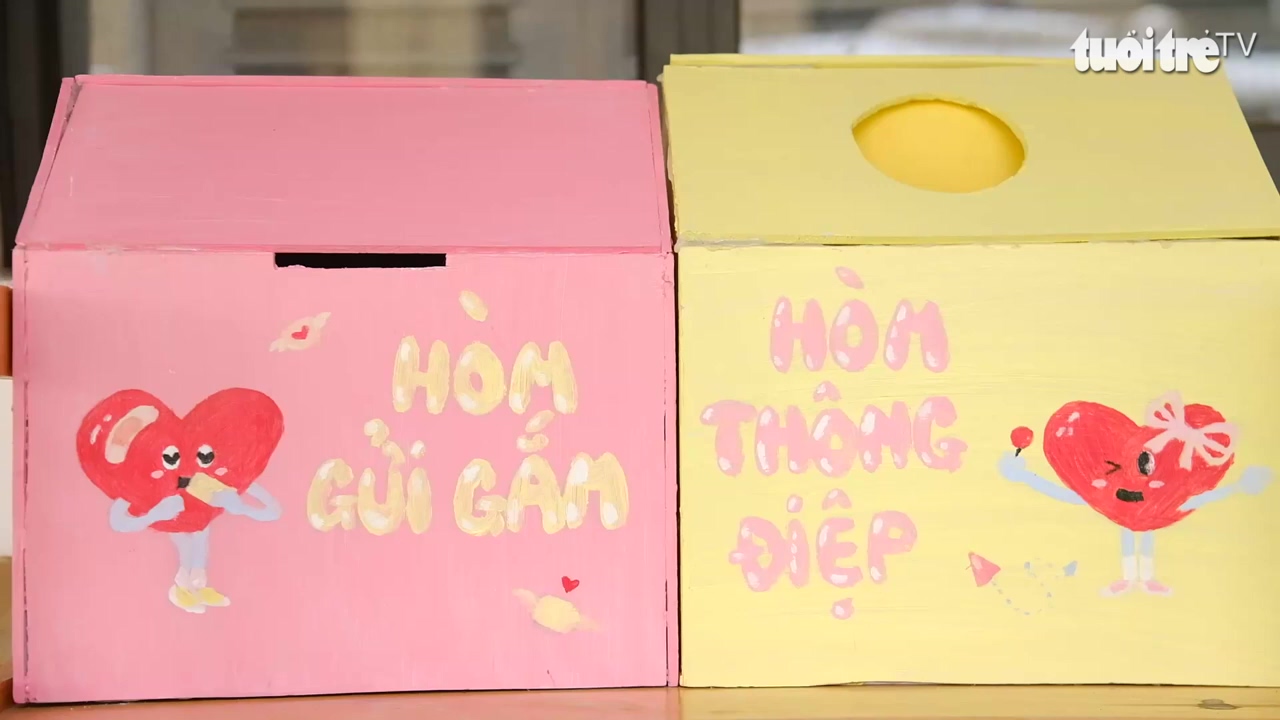 tuổi trẻ TV
HÒM
GỬI GẮM
HÒM
THÔNG
ĐIỆP